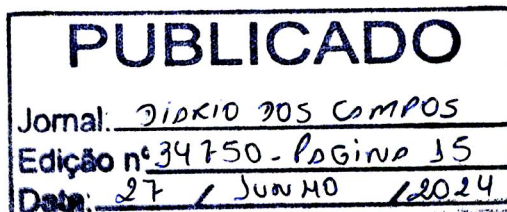 PUBLICADO
Jornal: DIARIO DOS CAMPOS
Edição nº 34750 - PAGINA 15
Data: 27 / JUNHO / 2024